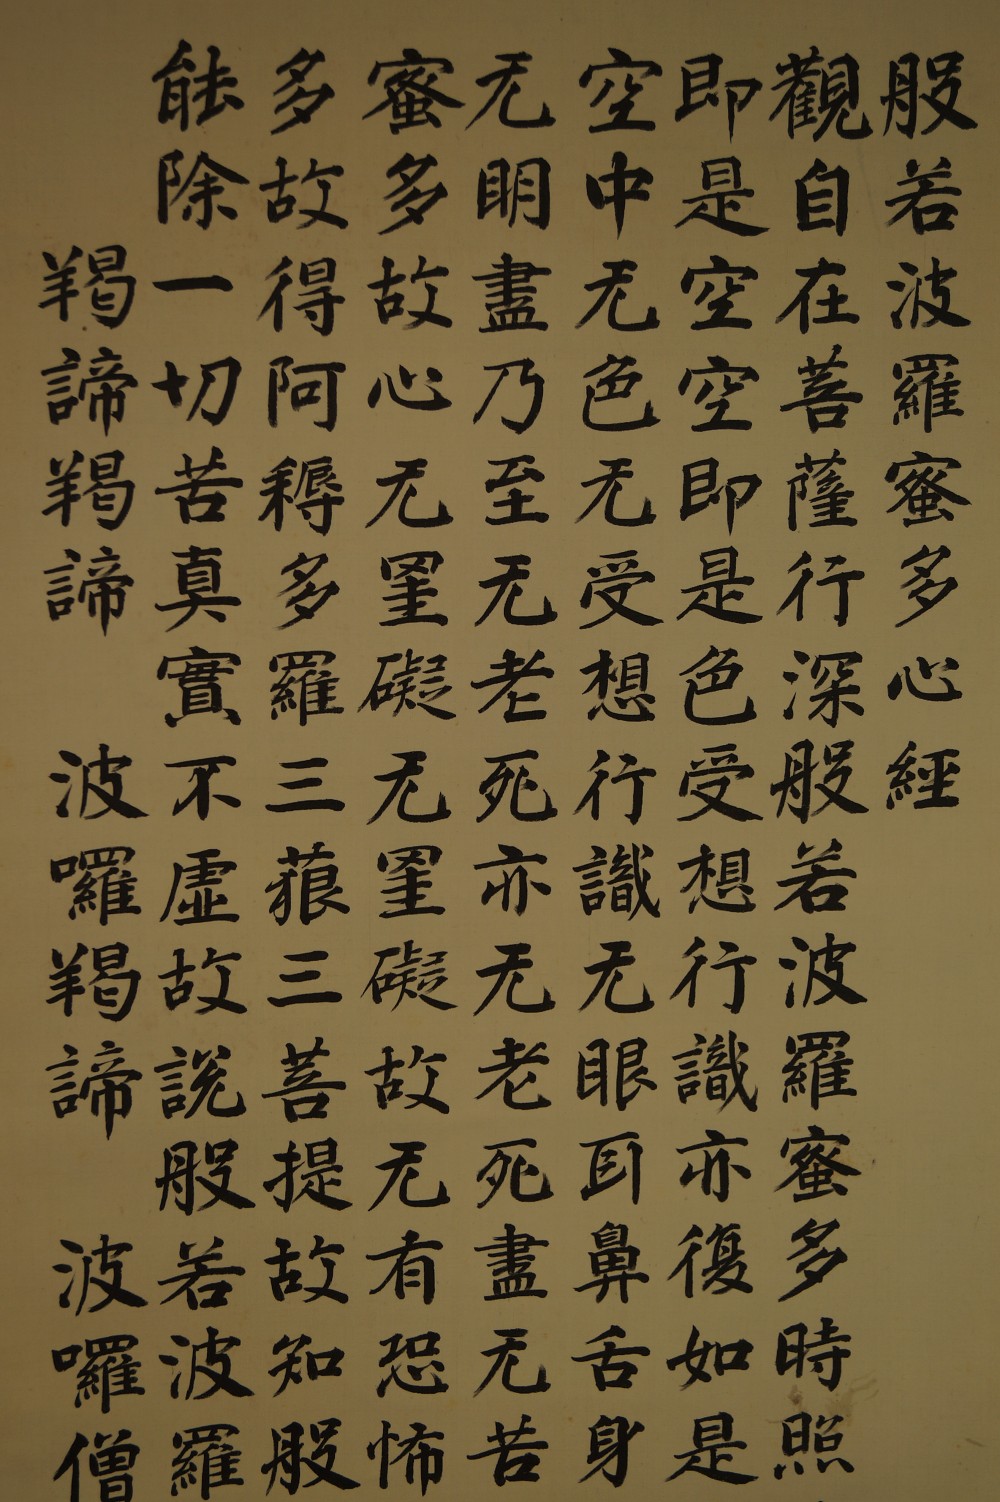 般若波羅蜜多心經
觀自在菩薩行深般若波羅蜜多時照
即是空空即是色受想行識亦復如是
空中无色无受想行識无眼耳鼻舌身
无明盡乃至无老死亦无老死盡无苦
蜜多故心无罣礙无罣礙故无有恐怖
多故得阿耨多羅三藐三菩提故知般
能除一切苦真實不虛故說般若波羅
羯諦羯諦 波囉羯諦 波囉僧